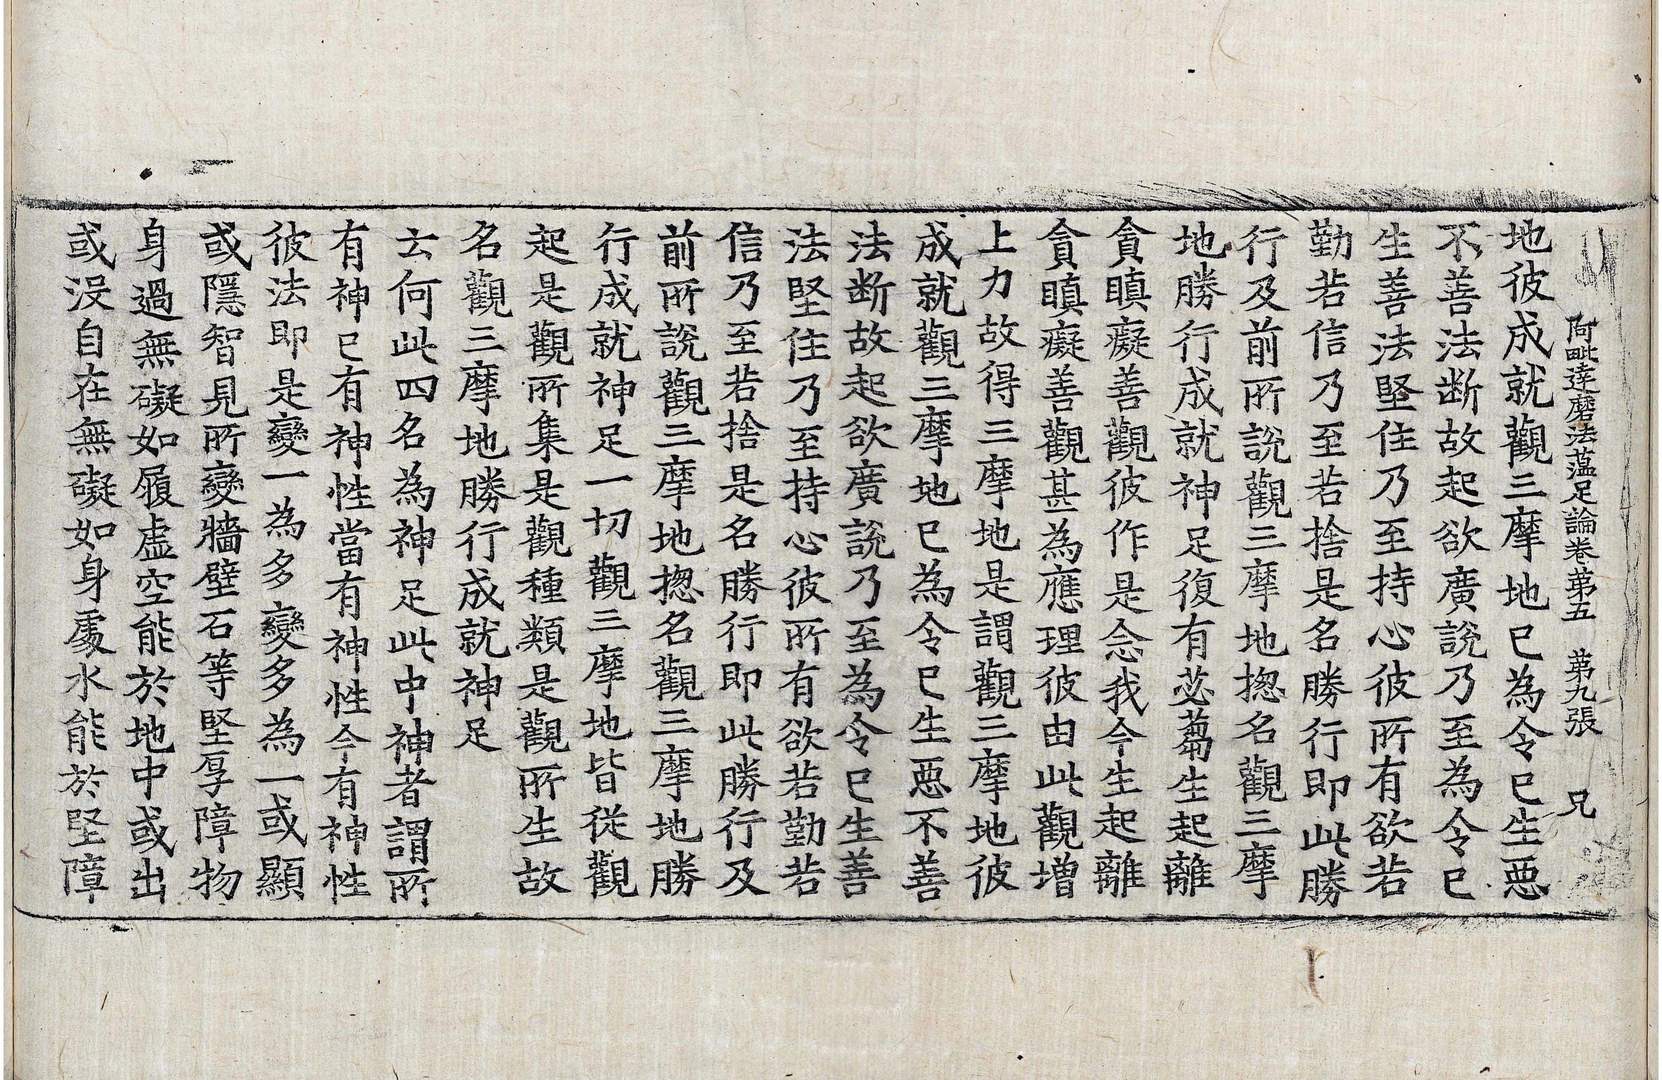 阿毗達磨法蘊足論卷第五　第九張　兄
地彼成就觀三摩地已為令已生惡
不善法断故起欲廣說乃至為令已
生善法堅住乃至持心彼所有欲若
勤若信乃至若捨是名勝行即此勝
行及前所說觀三摩地揔名觀三摩
地勝行成就神足復有苾蒭生起離
貪瞋癡善觀彼作是念我今生起離
貪瞋癡善觀甚為應理彼由此觀增
上力故得三摩地是謂觀三摩地彼
成就觀三摩地已為令已生惡不善
法断故起欲廣說乃至為令已生善
法堅住乃至持心彼所有欲若勤若
信乃至若捨是名勝行即此勝行及
前所說觀三摩地揔名觀三摩地勝
行成就神足一切觀三摩地皆從觀
起是觀所集是觀種類是觀所生故
名觀三摩地勝行成就神足
云何此四名為神足此中神者謂所
有神已有神性當有神性今有神性
彼法即是變一為多變多為一或顯
或隱智見所變牆壁石等堅厚障物
身過無礙如履虛空能於地中或出
或沒自在無礙如身處水能於堅障